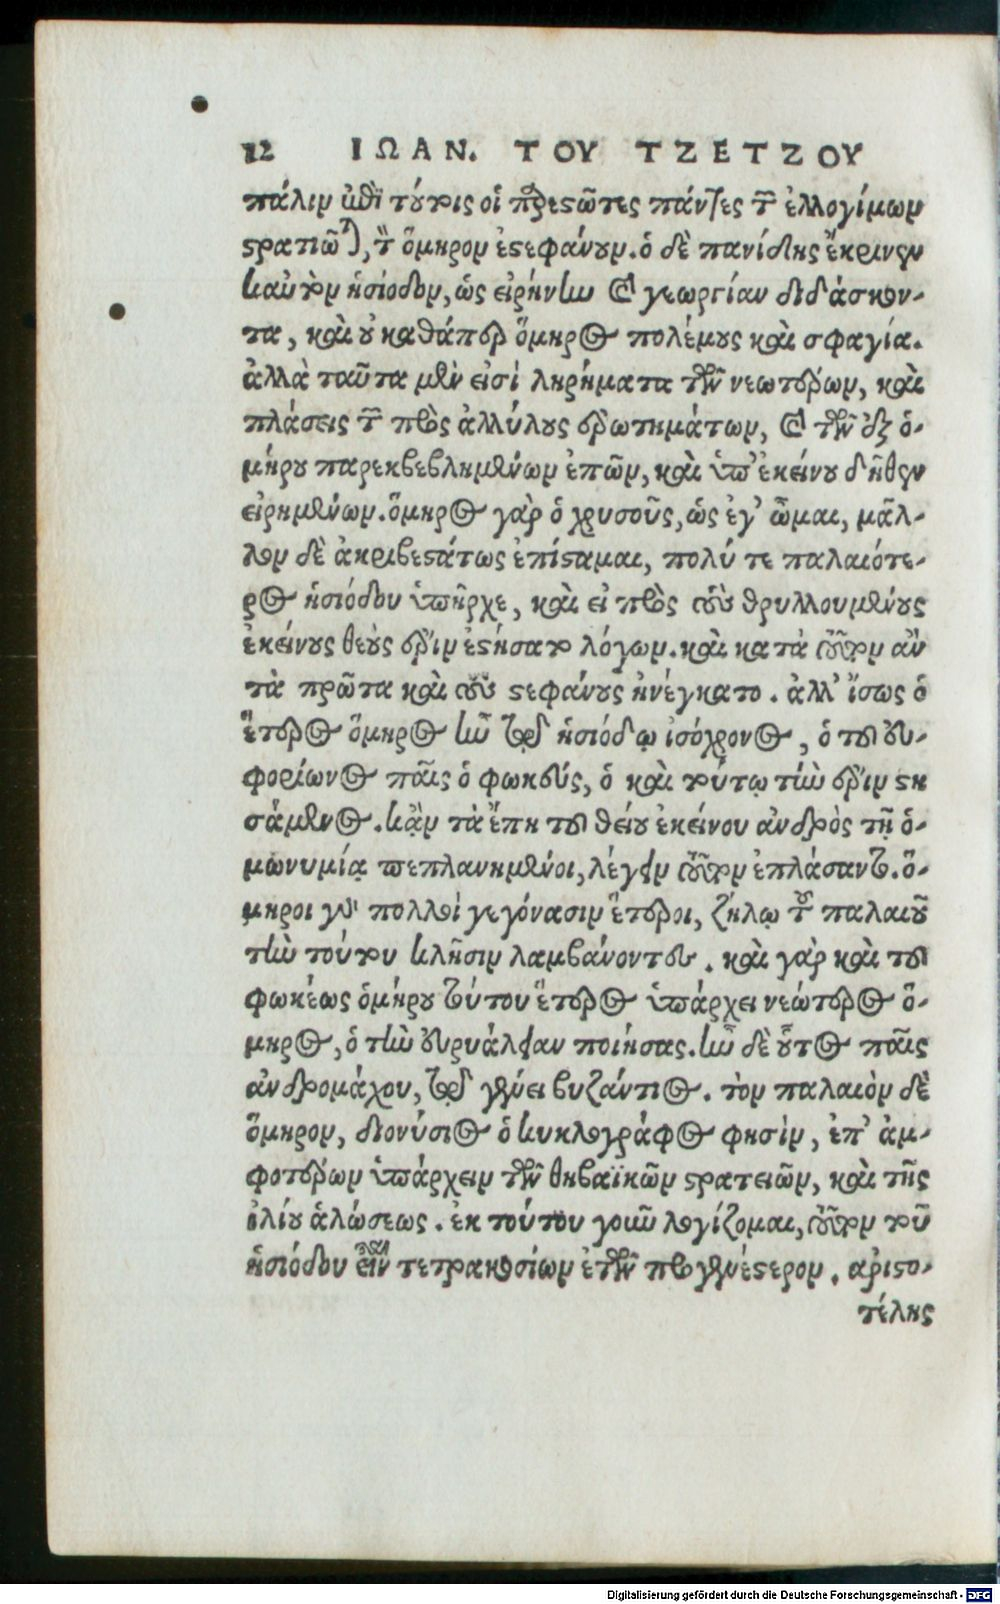 12 ΙΩΑΝ. ΤΟΥ ΤΖΕΤΖΟΥ
πάλιν ἐπὶ τούτοις οἱ προεστῶτες πάντες τῶν ἐλλογίμων
στρατιωτῶν, τὸν ὅμηρον ἐστεφάνουν. ὁ δὲ πανίδης ἔκρινεν
νικᾶν τὸν ἡσίοδον, ὡς εἰρήνην καὶ γεωργίαν διδάσκον-
τα, καὶ οὐ καθάπερ ὅμηρος πολέμους καὶ σφαγία.
ἀλλὰ ταῦτα μὲν εἰσὶ ληρήματα τῶν νεωτέρων, καὶ
πλάσεις τῶν πρὸς ἀλλήλους ἐρωτημάτων, καὶ τῶν ἐξ ὁ-
μήρου παρεκβεβλημένων ἐπῶν, καὶ ὑπ' ἐκείνου δῆθεν
εἰρημένων. ὅμηρος γὰρ ὁ χρυσοῦς, ὡς ἐγ' ὦμαι, μᾶλ-
λον δὲ ἀκριβεστάτως ἐπίσταμαι, πολύ τε παλαιότε-
ρος ἡσιόδου ὑπῆρχε, καὶ εἰ πρὸς τοὺς θρυλλουμένους
ἐκείνους θεοὺς ἔριν ἐστήσατο λόγων. καὶ κατὰ τούτων ἂν
τὰ πρῶτα καὶ τοὺς στεφάνους ἠνέγκατο. ἀλλ' ἴσως ὁ
ἕτερος ὅμηρος ἦν τῷ ἡσιόδῳ ἰσόχρονος, ὁ τοῦ εὐ-
φορίωνος παῖς ὁ φωκεύς, ὁ καὶ τούτῳ τὴν ἔριν στη
σάμενος. κἂν τὰ ἔπη τοῦ θείου ἐκείνου ἀνδρὸς τῇ ὁ-
μωνυμίᾳ πεπλανημένοι, λέγειν τοῦτον ἐπλάσαντο. ὅ-
μηροι γὰρ πολλοὶ γεγόνασιν ἕτεροι, ζήλῳ τοῦ παλαιοῦ
τὴν τούτου κλῆσιν λαμβάνοντες. καὶ γὰρ καὶ τοῦ
φωκέως ὁμήρου τούτου ἕτερος ὑπάρχει νεώτερος ὅ-
μηρος, ὁ τὴν εὐρυάλειαν ποιήσας. ἦν δὲ οὗτος παῖς
ἀνδρομάχου, τῷ γένει βυζάντιος. τὸν παλαιὸν δὲ
ὅμηρον, διονύσιος ὁ κυκλογράφος φησὶν, ἐπ' ἀμ-
φοτέρων ὑπάρχειν τῶν θηβαϊκῶν στρατειῶν, καὶ τῆς
ἰλίου ἁλώσεως. ἐκ τούτου γοῦν λογίζομαι, τοῦτον τοῦ
ἡσιόδου εἶναι τετρακοσίων ἐτῶν προγενέστερον. ἀριστο-
τέλης
Digitalisierung gefördert durch die Deutsche Forschungsgemeinschaft - DFG